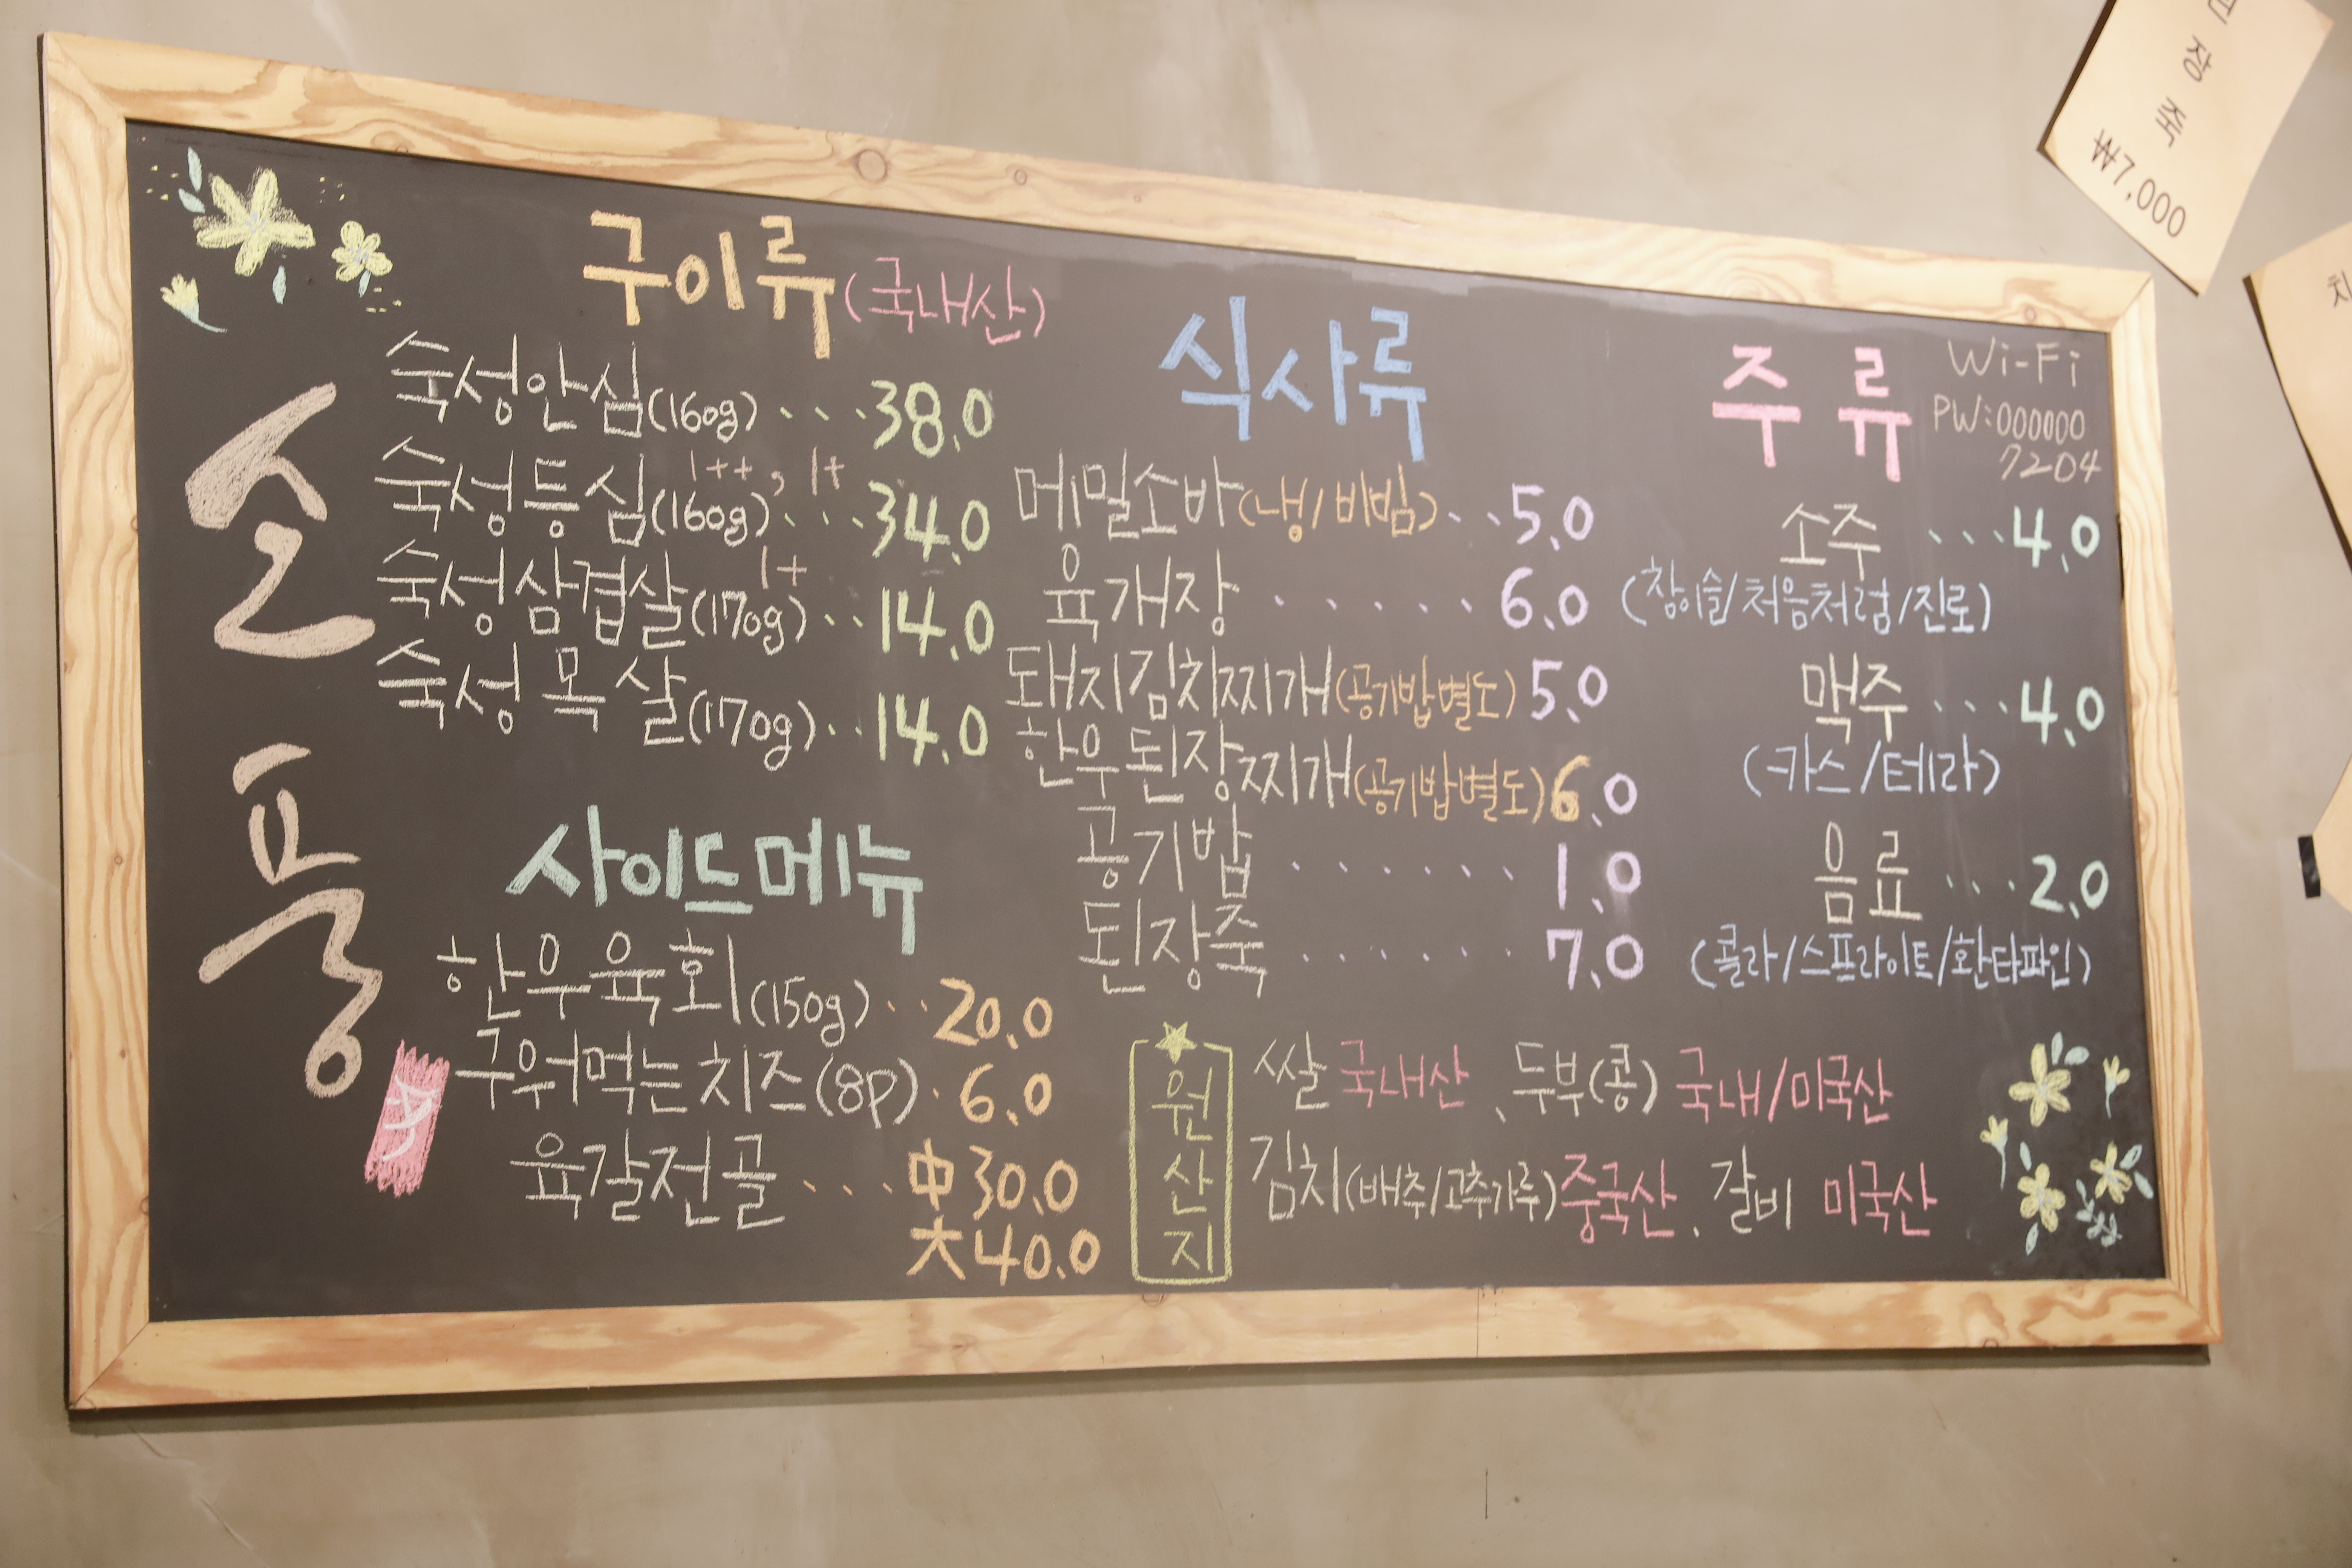 소풍
구이류(국내산)
숙성안심(160g)...38.0
1++, 1+
숙성등심(160g)...34.0
1+
숙성삼겹살(170g)..14.0
숙성목살(170g)..14.0
사이드메뉴
한우육회(150g)..20.0
구워먹는치즈(8P).6.0
육갈전골...中30.0
大40.0
식사류
메밀소바(냉/비빔)..5.0
육개장......6.0
돼지김치찌개(공기밥별도)5.0
한우된장찌개(공기밥별도)6.0
공기밥......1.0
된장죽.......7.0
주류
Wi-Fi
PW:000000
7204
소주...4.0
(참이슬/처음처럼/진로)
맥주...4.0
(카스/테라)
음료...2.0
(콜라/스프라이트/환타파인)
원산지
쌀 국내산, 두부(콩) 국내/미국산
김치(배추/고추가루)중국산, 갈비 미국산
장죽
₩7,000